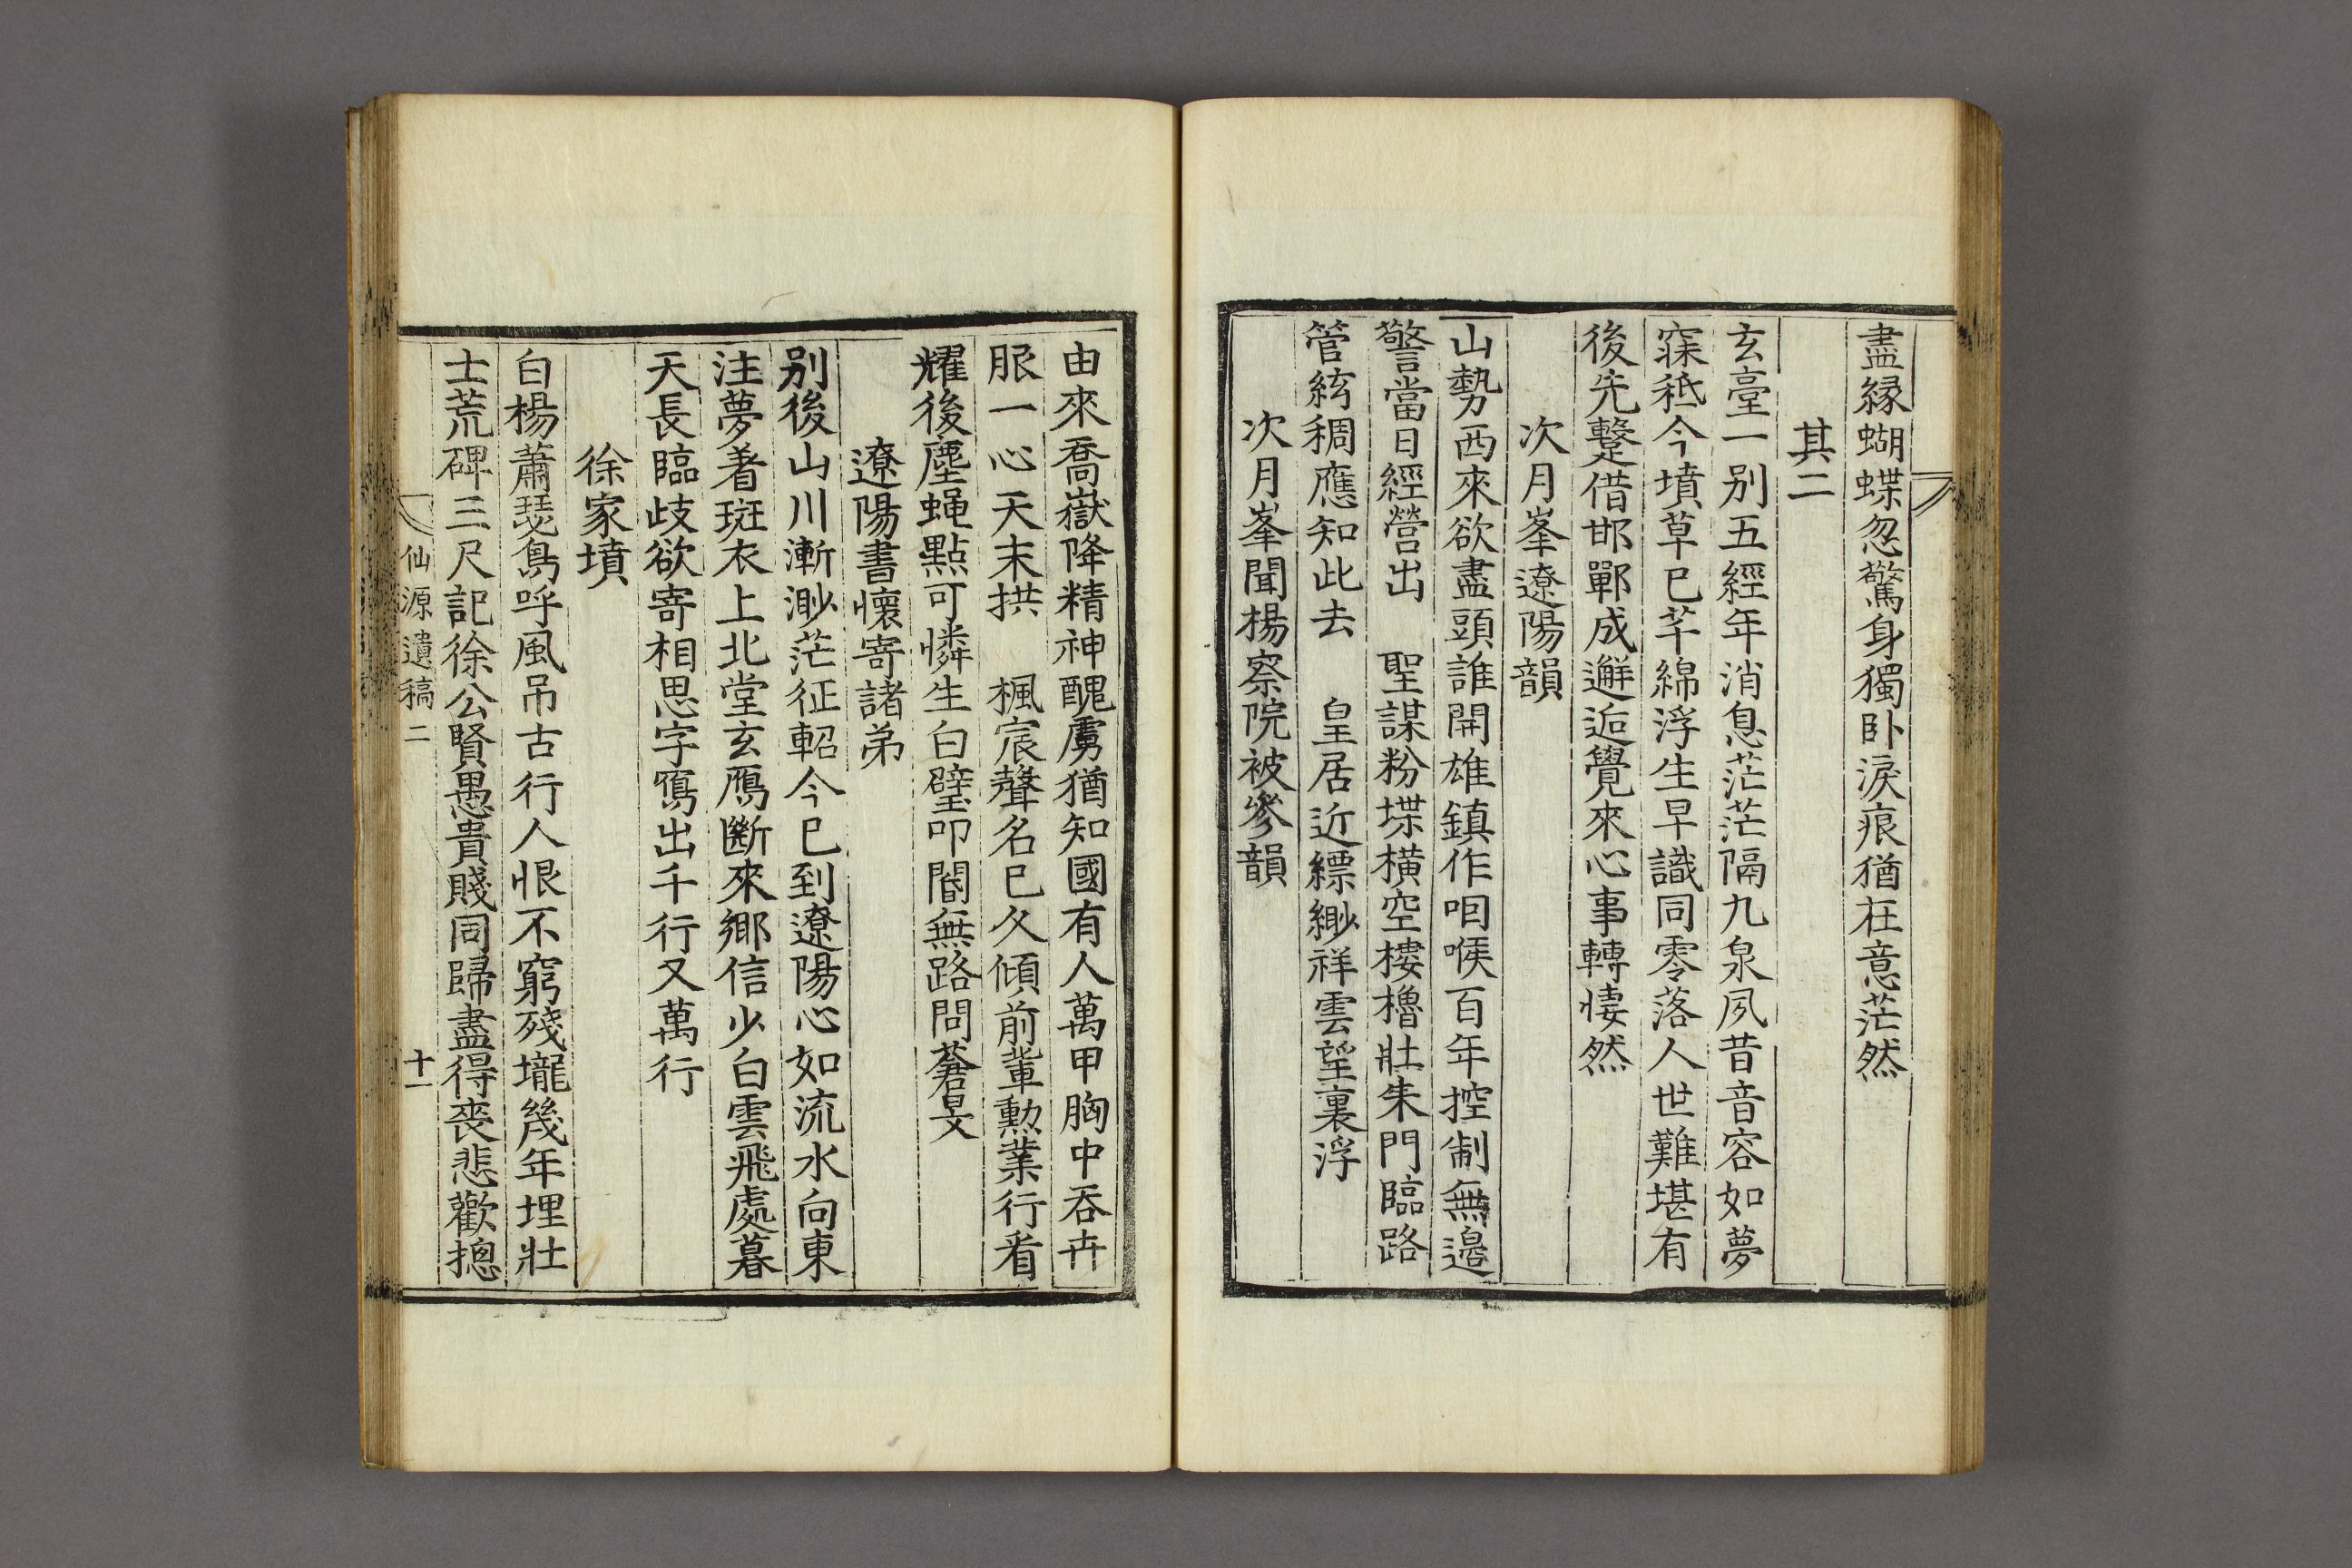 盡緣蝴蝶忽驚身獨卧淚痕猶在意茫然
其二
玄臺一别五經年消息茫茫隔九泉夙昔音容如夢
寐秪今墳草已芊綿浮生早識同零落人世難堪有
後先蹔借邯鄲成邂逅覺來心事轉悽然
次月峯遼陽韻
山勢西來欲盡頭誰開雄鎮作咽喉百年控制無邊
警當日經營出 聖謀粉堞橫空樓櫓壯朱門臨路
管絃稠應知此去 皇居近縹緲祥雲望裏浮
次月峯聞楊察院被參韻
由來喬嶽降精神醜虜猶知國有人萬甲胸中吞卉
服一心天末拱 楓宸聲名已久傾前軰勳業行看
耀後塵蝇點可憐生白璧叩閽無路問蒼旻
遼陽書懷寄諸弟
别後山川漸渺茫征軺今已到遼陽心如流水向東
注夢着斑衣上北堂玄鴈斷來鄉信少白雲飛處暮
天長臨歧欲寄相思字寫出千行又萬行
徐家墳
白楊蕭瑟鳥呼風吊古行人恨不窮殘壠幾年埋壯
士荒碑三尺記徐公賢愚貴賤同歸盡得丧悲歡摠
仙源遺稿二 十一